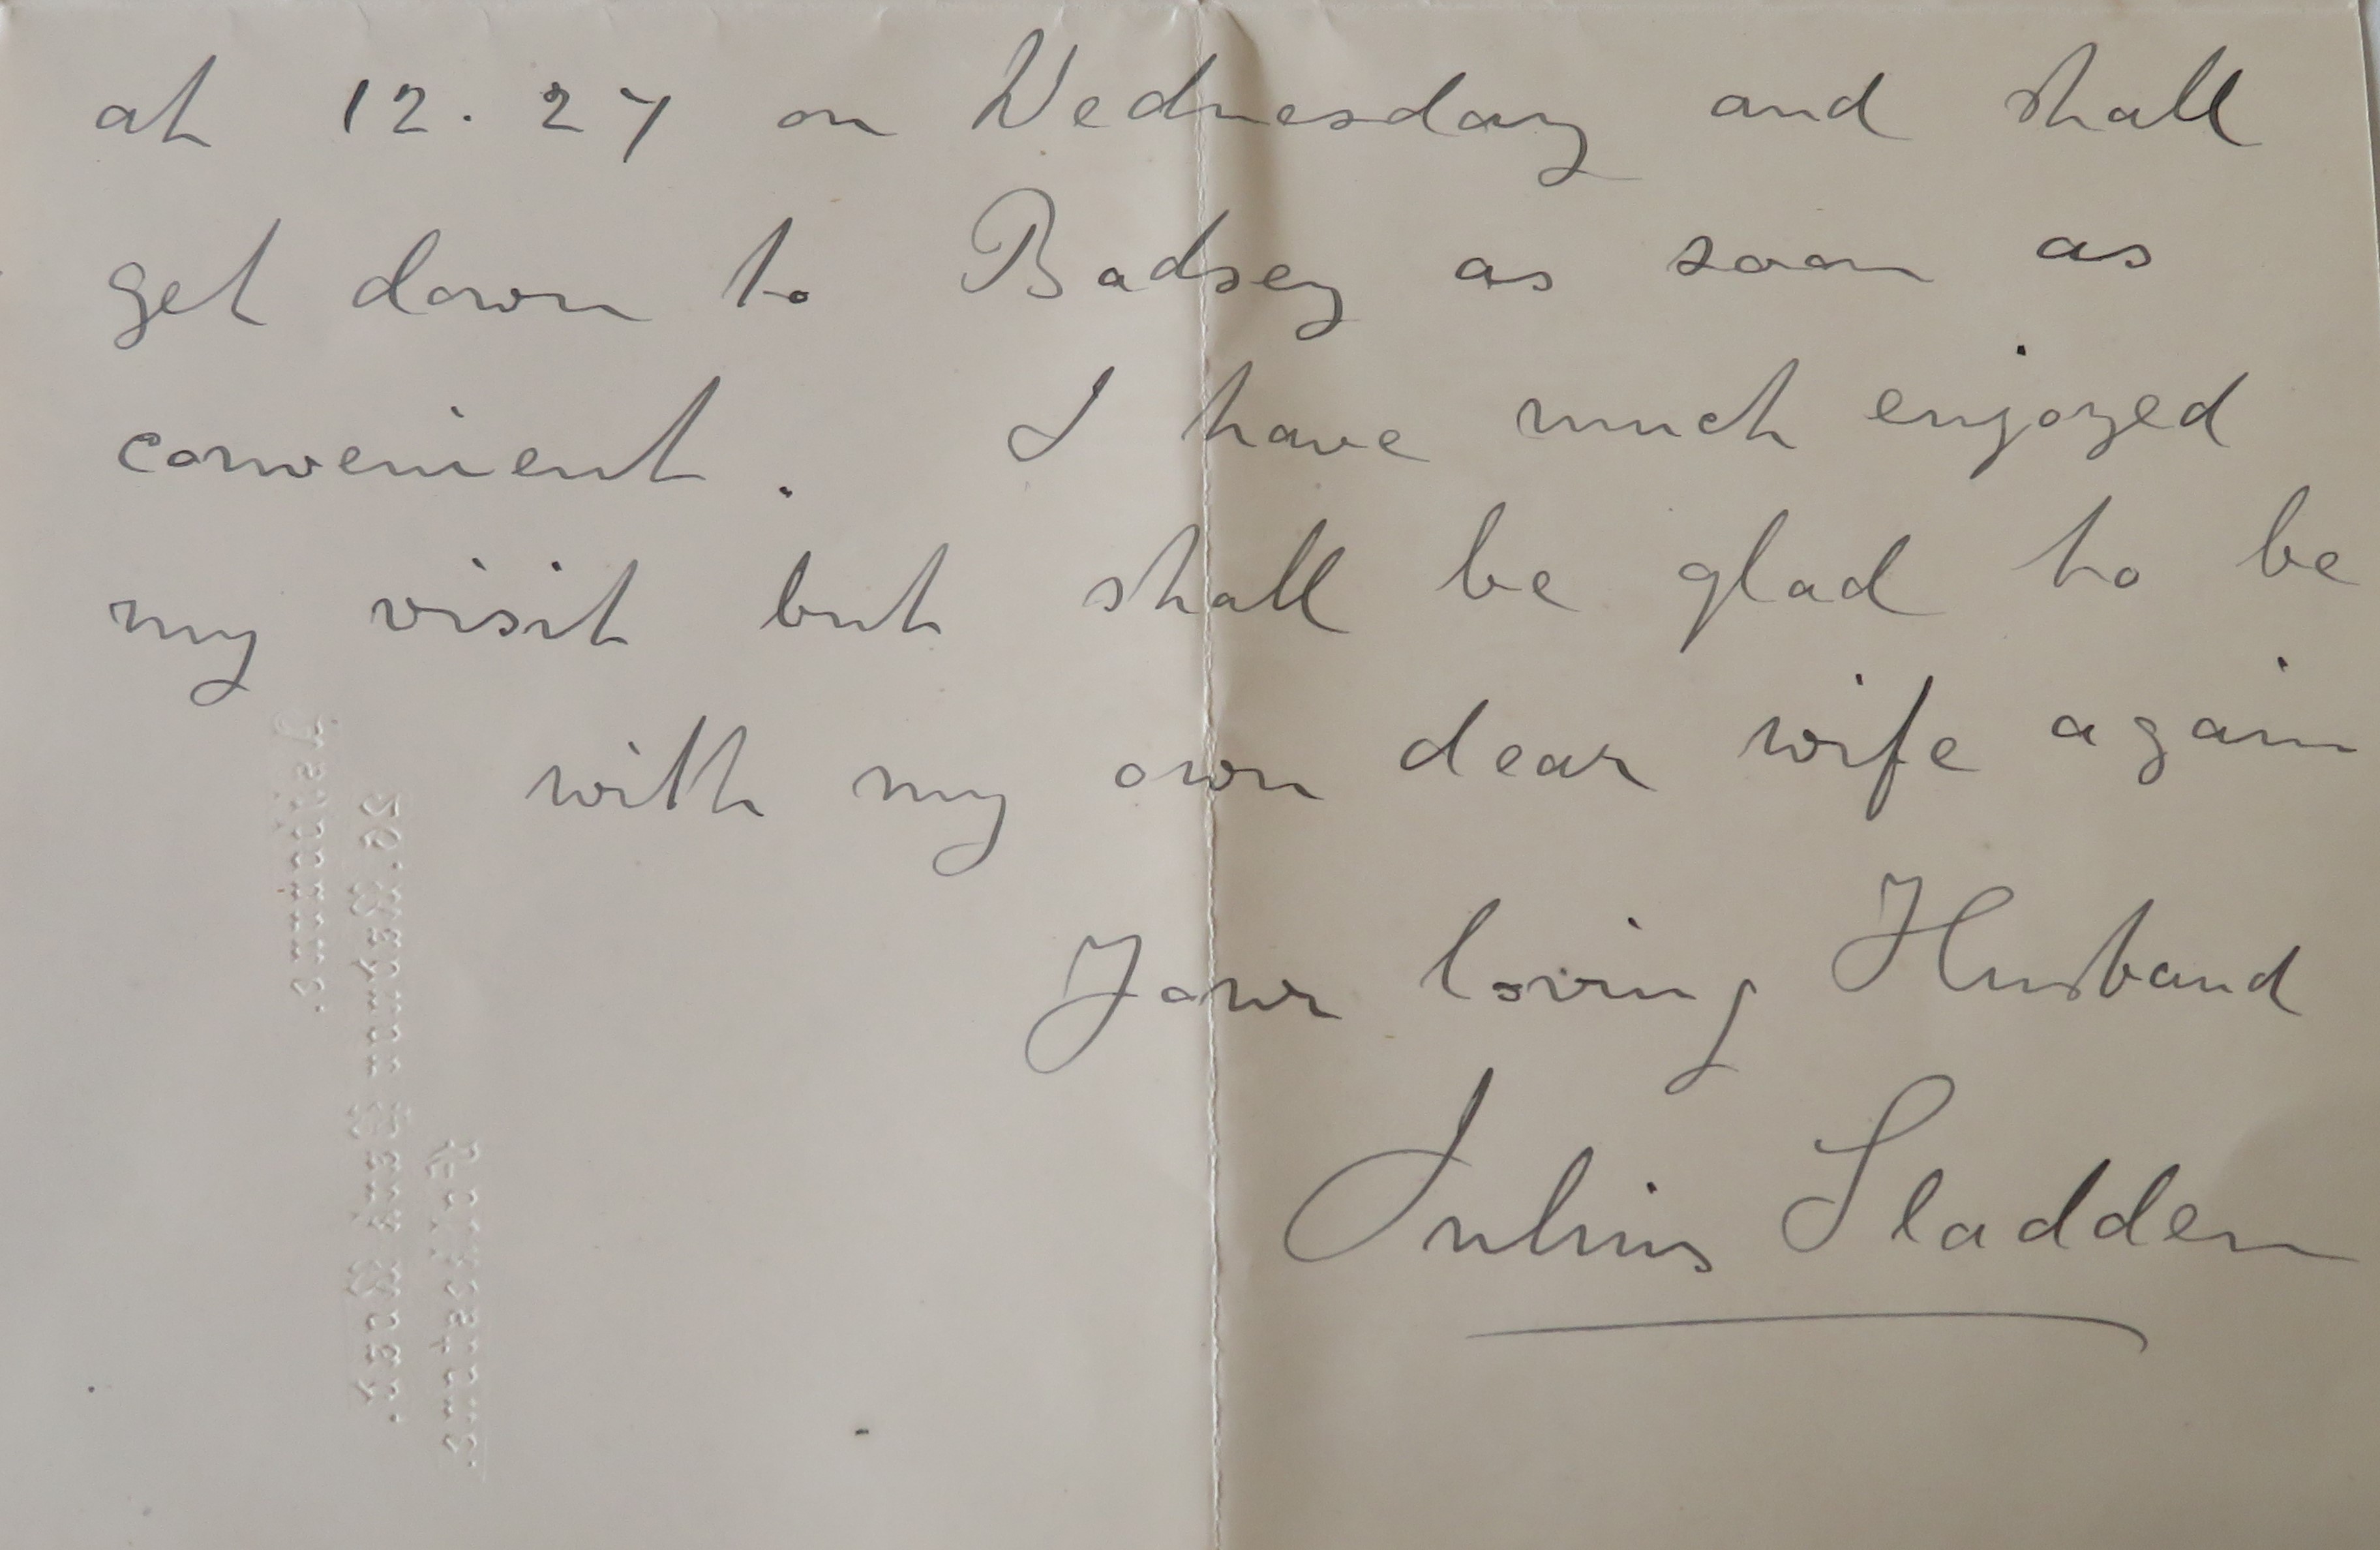 at 12.27 on Wednesday and shall
get down to Badsey as soon as
convenient. I have much enjoyed
my visit but shall be glad to be
with my own dear wife again
Your loving Husband
Julius Sladden
Folkestone.
26. Radnor Park West.